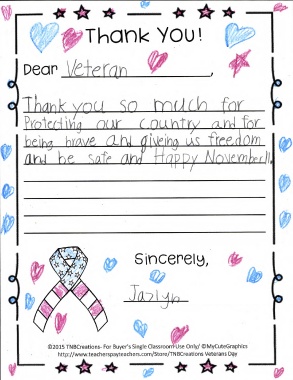 Thank You!
Dear Veteran,
Thank you so much for
Protecting our country and for
being brave and giveing us freedom
and be safe and Happy November!!.
Sincerely,
Jazlyn
©2015 TNBCreations- For Buyer's Single Classroom Use Only/ ©MyCuteGraphics
http://www.teacherspayteachers.com/Store/TNBCreations Veterans Day